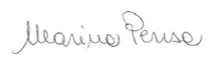 Marina Pensa